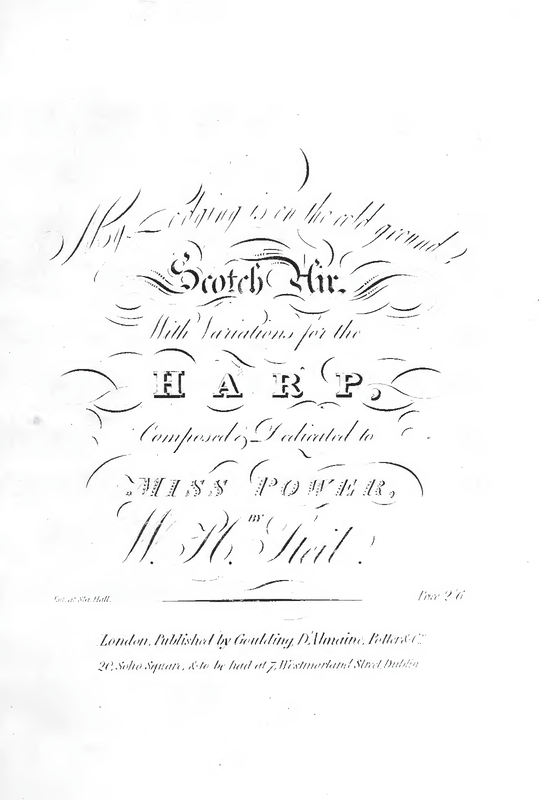 My Lodging is on the cold ground,
Scotch Air.
With Variations for the
HARP,
Composed & Dedicated to
MISS POWER,
BY
W. H. Steil.
Ent. at Sta. Hall. Price 2/6
London, Published by Goulding, D'Almaine, Potter & Co.
20, Soho Square, & to be had at 7, Westmorland Street, Dublin